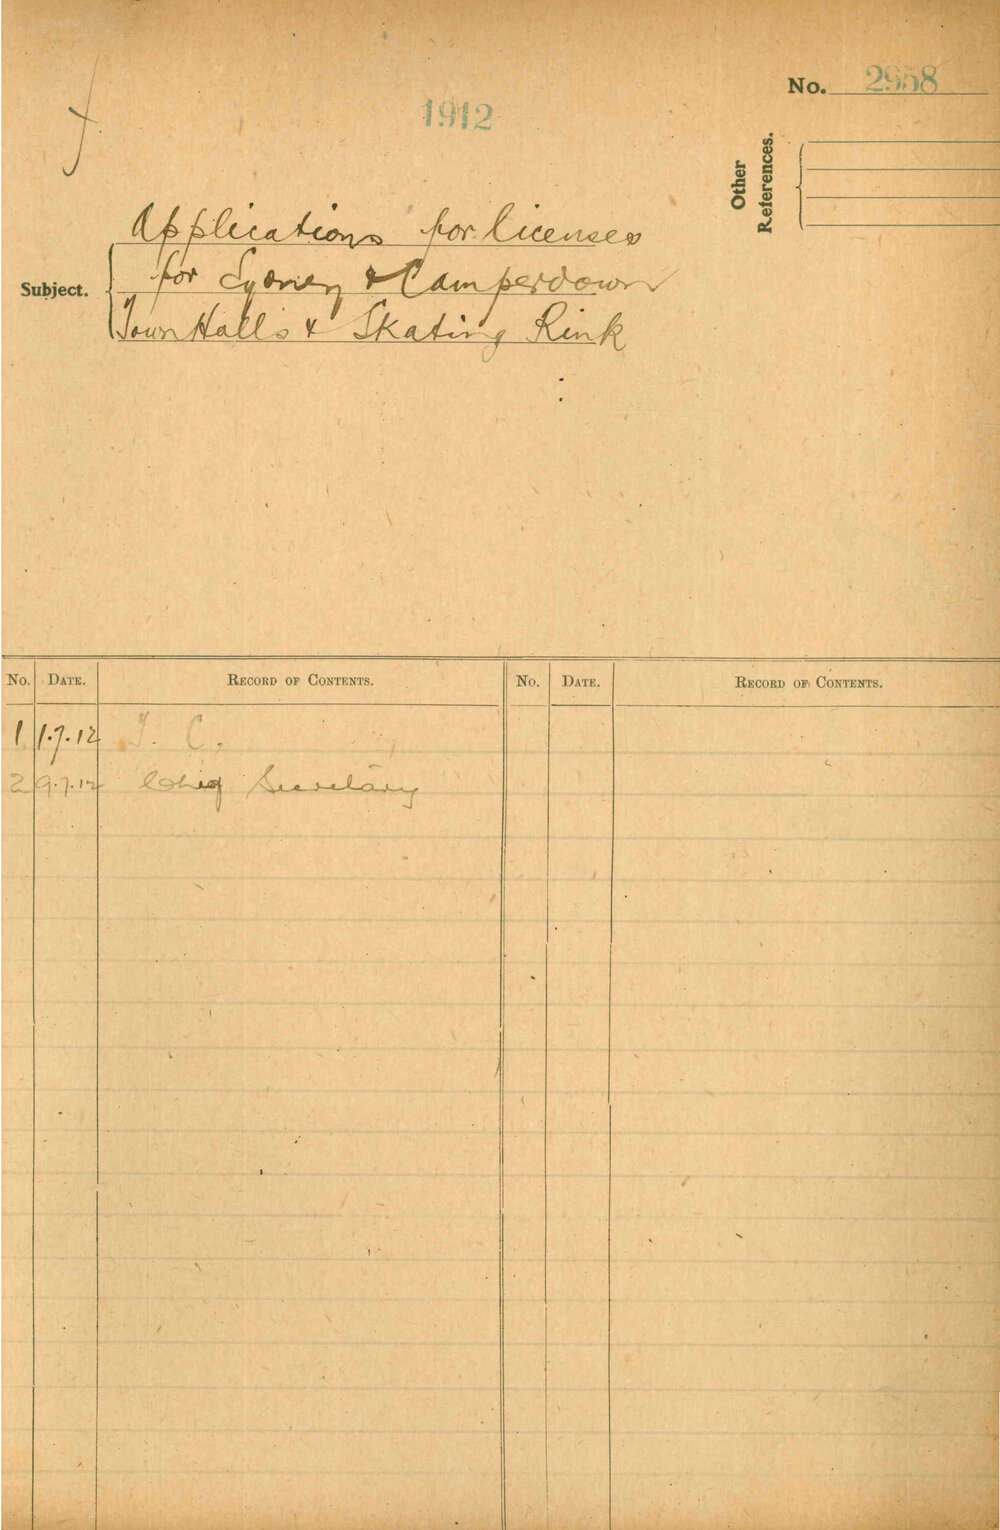 No. 2958
1912
Other
References.
Applications for licenses
for Sydney & Camperdown
Subject.
Town Halls & Skating Rink
No. DATE. RECORD OF CONTENTS. No. DATE. RECORD OF CONTENTS.
1 1.7.12 T. C.
2 9.7.12 Chief Secretary